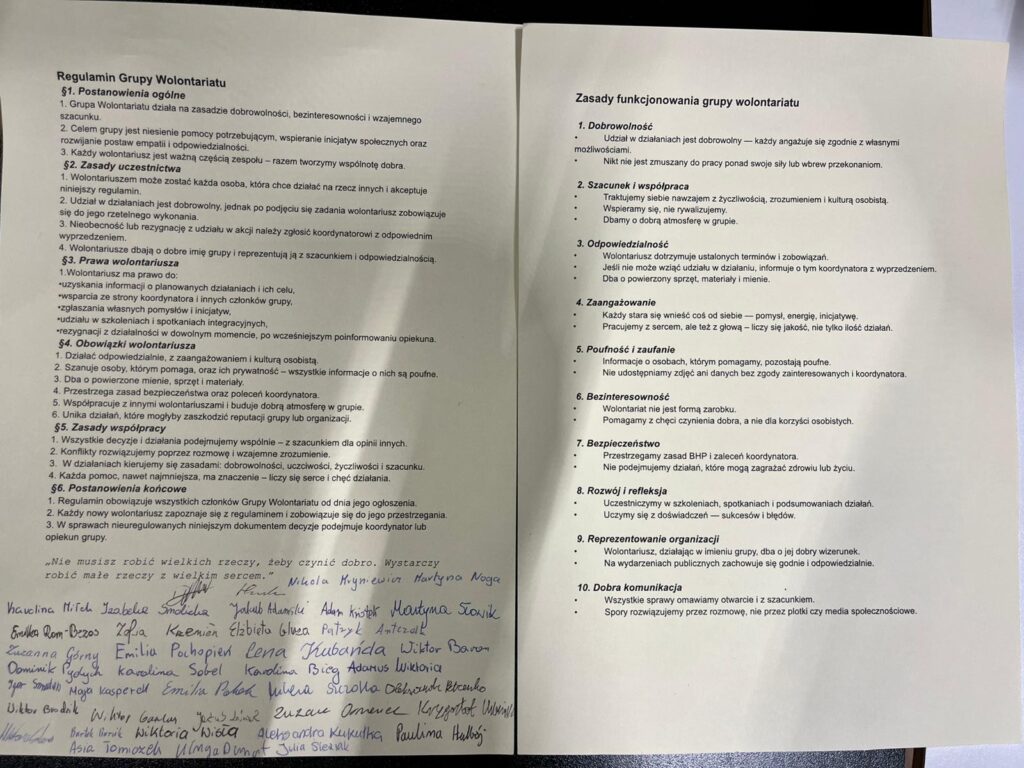 Regulamin Grupy Wolontariatu
§1. Postanowienia ogólne
1. Grupa Wolontariatu działa na zasadzie dobrowolności, bezinteresowności i wzajemnego
szacunku.
2. Celem grupy jest niesienie pomocy potrzebującym, wspieranie inicjatyw społecznych oraz
rozwijanie postaw empatii i odpowiedzialności.
3. Każdy wolontariusz jest ważną częścią zespołu – razem tworzymy wspólnotę dobra.
§2. Zasady uczestnictwa
1. Wolontariuszem może zostać każda osoba, która chce działać na rzecz innych i akceptuje
niniejszy regulamin.
2. Udział w działaniach jest dobrowolny, jednak po podjęciu się zadania wolontariusz zobowiązuje
się do jego rzetelnego wykonania.
3. Nieobecność lub rezygnację z udziału w akcji należy zgłosić koordynatorowi z odpowiednim
wyprzedzeniem.
4. Wolontariusze dbają o dobre imię grupy i reprezentują ją z szacunkiem i odpowiedzialnością.
§3. Prawa wolontariusza
1.Wolontariusz ma prawo do:
•uzyskania informacji o planowanych działaniach i ich celu,
•wsparcia ze strony koordynatora i innych członków grupy,
•zgłaszania własnych pomysłów i inicjatyw,
•udziału w szkoleniach i spotkaniach integracyjnych,
•rezygnacji z działalności w dowolnym momencie, po wcześniejszym poinformowaniu opiekuna.
§4. Obowiązki wolontariusza
1. Działać odpowiedzialnie, z zaangażowaniem i kulturą osobistą.
2. Szanuje osoby, którym pomaga, oraz ich prywatność – wszystkie informacje o nich są poufne.
3. Dba o powierzone mienie, sprzęt i materiały.
4. Przestrzega zasad bezpieczeństwa oraz poleceń koordynatora.
5. Współpracuje z innymi wolontariuszami i buduje dobrą atmosferę w grupie.
6. Unika działań, które mogłyby zaszkodzić reputacji grupy lub organizacji.
§5. Zasady współpracy
1. Wszystkie decyzje i działania podejmujemy wspólnie – z szacunkiem dla opinii innych.
2. Konflikty rozwiązujemy poprzez rozmowę i wzajemne zrozumienie.
3. W działaniach kierujemy się zasadami: dobrowolności, uczciwości, życzliwości i szacunku.
4. Każda pomoc, nawet najmniejsza, ma znaczenie – liczy się serce i chęć działania.
§6. Postanowienia końcowe
1. Regulamin obowiązuje wszystkich członków Grupy Wolontariatu od dnia jego ogłoszenia.
2. Każdy nowy wolontariusz zapoznaje się z regulaminem i zobowiązuje się do jego przestrzegania.
3. W sprawach nieuregulowanych niniejszym dokumentem decyzje podejmuje koordynator lub
opiekun grupy.
„Nie musisz robić wielkich rzeczy, żeby czynić dobro. Wystarczy
robić małe rzeczy z wielkim sercem."
Nikola Mryniewicz Martyna Noga
Karolina Mitch Izabela Jakub Adamski Adam Martyna Słowik
Emilka Zofia Krzemień Elżbieta Gluza Patryk Antczak
Zuzanna Górny Emilia Pachopień Lena Kubańda Wiktor Baran
Dominik Karolina Sobel Karolina Bieg Adamus Wiktoria
Igor Maja Kasperek Emilia
Wiktor Brodnik Wiktor
Bartek Wiktoria Wisła Aleksandra Kukułka Paulina
Asia Tomiczek Kinga Julia
Zasady funkcjonowania grupy wolontariatu
1. Dobrowolność
• Udział w działaniach jest dobrowolny — każdy angażuje się zgodnie z własnymi
możliwościami.
• Nikt nie jest zmuszany do pracy ponad swoje siły lub wbrew przekonaniom.
2. Szacunek i współpraca
• Traktujemy siebie nawzajem z życzliwością, zrozumieniem i kulturą osobistą.
• Wspieramy się, nie rywalizujemy.
• Dbamy o dobrą atmosferę w grupie.
3. Odpowiedzialność
• Wolontariusz dotrzymuje ustalonych terminów i zobowiązań.
• Jeśli nie może wziąć udziału w działaniu, informuje o tym koordynatora z wyprzedzeniem.
• Dba o powierzony sprzęt, materiały i mienie.
4. Zaangażowanie
• Każdy stara się wnieść coś od siebie — pomysł, energię, inicjatywę.
• Pracujemy z sercem, ale też z głową – liczy się jakość, nie tylko ilość działań.
5. Poufność i zaufanie
• Informacje o osobach, którym pomagamy, pozostają poufne.
• Nie udostępniamy zdjęć ani danych bez zgody zainteresowanych i koordynatora.
6. Bezinteresowność
• Wolontariat nie jest formą zarobku.
• Pomagamy z chęci czynienia dobra, a nie dla korzyści osobistych.
7. Bezpieczeństwo
• Przestrzegamy zasad BHP i zaleceń koordynatora.
• Nie podejmujemy działań, które mogą zagrażać zdrowiu lub życiu.
8. Rozwój i refleksja
• Uczestniczymy w szkoleniach, spotkaniach i podsumowaniach działań.
• Uczymy się z doświadczeń — sukcesów i błędów.
9. Reprezentowanie organizacji
• Wolontariusz, działając w imieniu grupy, dba o jej dobry wizerunek.
• Na wydarzeniach publicznych zachowuje się godnie i odpowiedzialnie.
10. Dobra komunikacja
• Wszystkie sprawy omawiamy otwarcie i z szacunkiem.
• Spory rozwiązujemy przez rozmowę, nie przez plotki czy media społecznościowe.